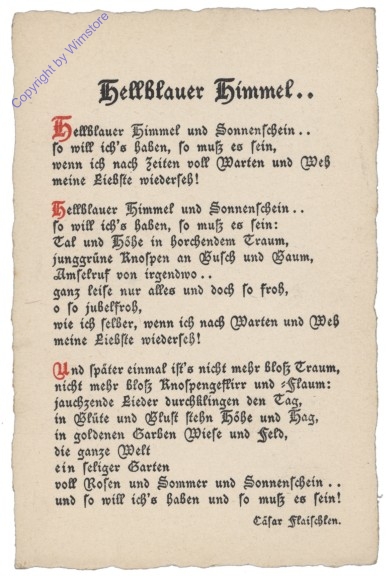 Copyright by Wimstore
Hellblauer Himmel..
Hellblauer Himmel und Sonnenschein..
so will ich's haben, so muß es sein,
wenn ich nach Zeiten voll Warten und Weh
meine Liebste wiederseh!
Hellblauer Himmel und Sonnenschein..
so will ich's haben, so muß es sein:
Tal und Höhe in horchendem Traum,
junggrüne Knospen an Busch und Baum,
Amselruf von irgendwo..
ganz leise nur alles und doch so froh,
o so jubelfroh,
wie ich selber, wenn ich nach Warten und Weh
meine Liebste wiederseh!
Und später einmal ist's nicht mehr bloß Traum,
nicht mehr bloß Knospengeflirr und -Flaum:
jauchzende Lieder durchklingen den Tag,
in Blüte und Blust stehn Höhe und Hag,
in goldenen Garben Wiese und Feld,
die ganze Welt
ein seliger Garten
voll Rosen und Sommer und Sonnenschein..
und so will ich's haben und so muß es sein!
Cäsar Flaischlen.